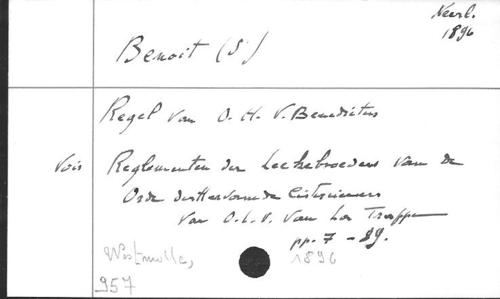 Neerl.
1896
Benoit (S.)
Regel van O. H. V. Benedictus
Vois Reglementen der Leekebroeders van de
Orde der Hervormde Cisterciensers
van O.L.V. van La Trappe
pp. 7 - 89.
Westmalle, 1896
957